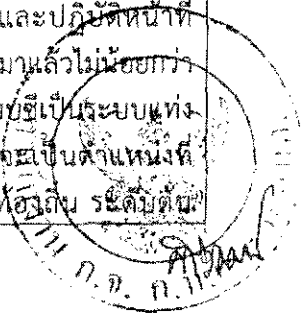 และปฏิบัติหน้าที่
มาแล้วไม่น้อยกว่า
เป็นระบบแท่ง
จะเป็นตำแหน่งที่
ท้องถิ่น ระดับต้น
ก.จ. ก.